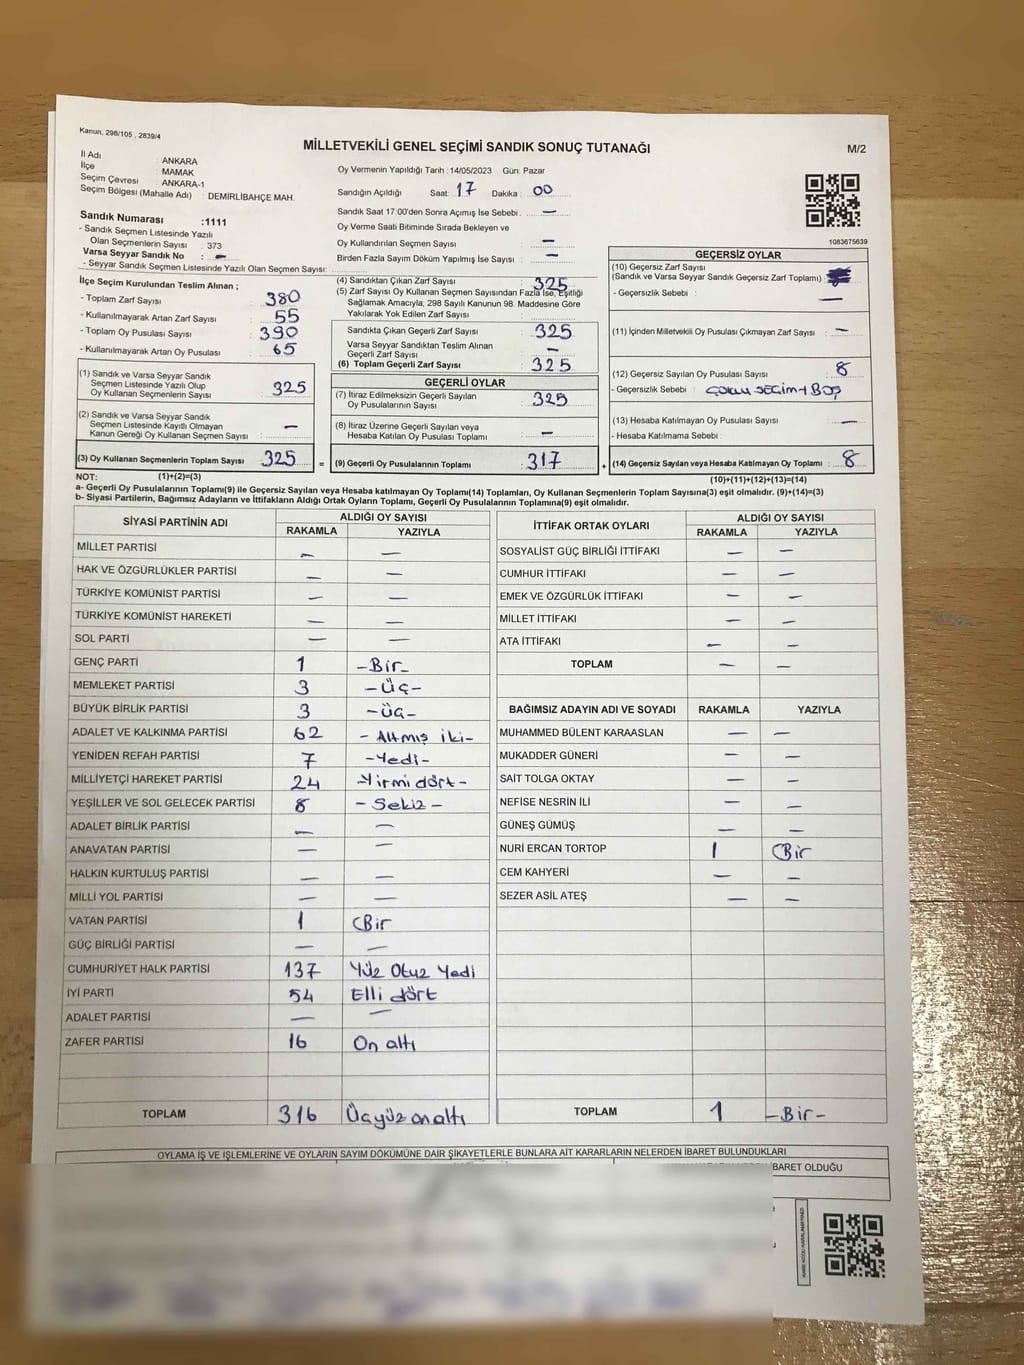 Kanun, 298/105 , 2839/4
MİLLETVEKİLİ GENEL SEÇİMİ SANDIK SONUÇ TUTANAĞI
M/2
İl Adı : ANKARA
İlçe : MAMAK
Seçim Çevresi : ANKARA-1
Seçim Bölgesi (Mahalle Adı) : DEMİRLİBAHÇE MAH.
Sandık Numarası :1111
- Sandık Seçmen Listesinde Yazılı
Olan Seçmenlerin Sayısı : 373
Varsa Seyyar Sandık No : -
- Seyyar Sandık Seçmen Listesinde Yazılı Olan Seçmen Sayısı:
Oy Vermenin Yapıldığı Tarih :14/05/2023 Gün: Pazar
Sandığın Açıldığı Saat: 17 Dakika : 00
Sandık Saat 17:00'den Sonra Açımış İse Sebebi : -
Oy Verme Saati Bitiminde Sırada Bekleyen ve
Oy Kullandırılan Seçmen Sayısı : -
Birden Fazla Sayım Döküm Yapılmış İse Sayısı : -
1083675639
İlçe Seçim Kurulundan Teslim Alınan ;
- Toplam Zarf Sayısı : 380
- Kullanılmayarak Artan Zarf Sayısı : 55
- Toplam Oy Pusulası Sayısı : 390
- Kullanılmayarak Artan Oy Pusulası : 65
(1) Sandık ve Varsa Seyyar Sandık
Seçmen Listesinde Yazılı Olup
Oy Kullanan Seçmenlerin Sayısı : 325
(2) Sandık ve Varsa Seyyar Sandık
Seçmen Listesinde Kayıtlı Olmayan
Kanun Gereği Oy Kullanan Seçmen Sayısı : -
(3) Oy Kullanan Seçmenlerin Toplam Sayısı : 325 =
(4) Sandıktan Çıkan Zarf Sayısı : 325
(5) Zarf Sayısı Oy Kullanan Seçmen Sayısından Fazla İse, Eşitliği
Sağlamak Amacıyla, 298 Sayılı Kanunun 98. Maddesine Göre
Yakılarak Yok Edilen Zarf Sayısı :
Sandıkta Çıkan Geçerli Zarf Sayısı : 325
Varsa Seyyar Sandıktan Teslim Alınan
Geçerli Zarf Sayısı : -
(6) Toplam Geçerli Zarf Sayısı : 325
GEÇERLİ OYLAR
(7) İtiraz Edilmeksizin Geçerli Sayılan
Oy Pusulalarının Sayısı : 325
(8) İtiraz Üzerine Geçerli Sayılan veya
Hesaba Katılan Oy Pusulası Toplamı : -
(9) Geçerli Oy Pusulalarının Toplamı : 317 +
GEÇERSİZ OYLAR
(10) Geçersiz Zarf Sayısı
(Sandık ve Varsa Seyyar Sandık Geçersiz Zarf Toplamı) :
- Geçersizlik Sebebi : -
(11) İçinden Milletvekili Oy Pusulası Çıkmayan Zarf Sayısı : -
(12) Geçersiz Sayılan Oy Pusulası Sayısı : 8
- Geçersizlik Sebebi : ÇOKLU SEÇİM + BOŞ
(13) Hesaba Katılmayan Oy Pusulası Sayısı : -
- Hesaba Katılmama Sebebi :
(14) Geçersiz Sayılan veya Hesaba Katılmayan Oy Toplamı : 8
NOT: (1)+(2)=(3) (10)+(11)+(12)+(13)=(14)
a- Geçerli Oy Pusulalarının Toplamı(9) ile Geçersiz Sayılan veya Hesaba katılmayan Oy Toplamı(14) Toplamları, Oy Kullanan Seçmenlerin Toplam Sayısına(3) eşit olmalıdır. (9)+(14)=(3)
b- Siyasi Partilerin, Bağımsız Adayların ve İttifakların Aldığı Ortak Oyların Toplamı, Geçerli Oy Pusulalarının Toplamına(9) eşit olmalıdır.
SİYASİ PARTİNİN ADI ALDIĞI OY SAYISI
RAKAMLA YAZIYLA
MİLLET PARTİSİ - -
HAK VE ÖZGÜRLÜKLER PARTİSİ - -
TÜRKİYE KOMÜNİST PARTİSİ - -
TÜRKİYE KOMÜNİST HAREKETİ - -
SOL PARTİ - -
GENÇ PARTİ 1 -Bir-
MEMLEKET PARTİSİ 3 -Üç-
BÜYÜK BİRLİK PARTİSİ 3 -Üç-
ADALET VE KALKINMA PARTİSİ 62 -Altmış iki-
YENİDEN REFAH PARTİSİ 7 -Yedi-
MİLLİYETÇİ HAREKET PARTİSİ 24 -Yirmi dört-
YEŞİLLER VE SOL GELECEK PARTİSİ 8 -Sekiz-
ADALET BİRLİK PARTİSİ - -
ANAVATAN PARTİSİ - -
HALKIN KURTULUŞ PARTİSİ - -
MİLLİ YOL PARTİSİ - -
VATAN PARTİSİ 1 Bir
GÜÇ BİRLİĞİ PARTİSİ - -
CUMHURİYET HALK PARTİSİ 137 Yüz Otuz Yedi
İYİ PARTİ 54 Elli dört
ADALET PARTİSİ - -
ZAFER PARTİSİ 16 On altı
TOPLAM 316 Üçyüz onaltı
İTTİFAK ORTAK OYLARI ALDIĞI OY SAYISI
RAKAMLA YAZIYLA
SOSYALİST GÜÇ BİRLİĞİ İTTİFAKI - -
CUMHUR İTTİFAKI - -
EMEK VE ÖZGÜRLÜK İTTİFAKI - -
MİLLET İTTİFAKI - -
ATA İTTİFAKI - -
TOPLAM - -
BAĞIMSIZ ADAYIN ADI VE SOYADI RAKAMLA YAZIYLA
MUHAMMED BÜLENT KARAASLAN - -
MUKADDER GÜNERİ - -
SAİT TOLGA OKTAY - -
NEFİSE NESRİN İLİ - -
GÜNEŞ GÜMÜŞ - -
NURİ ERCAN TORTOP 1 Bir
CEM KAHYERİ - -
SEZER ASİL ATEŞ - -
TOPLAM 1 -Bir-
OYLAMA İŞ VE İŞLEMLERİNE VE OYLARIN SAYIM DÖKÜMÜNE DAİR ŞİKAYETLERLE BUNLARA AİT KARARLARIN NELERDEN İBARET BULUNDUKLARI
İBARET OLDUĞU